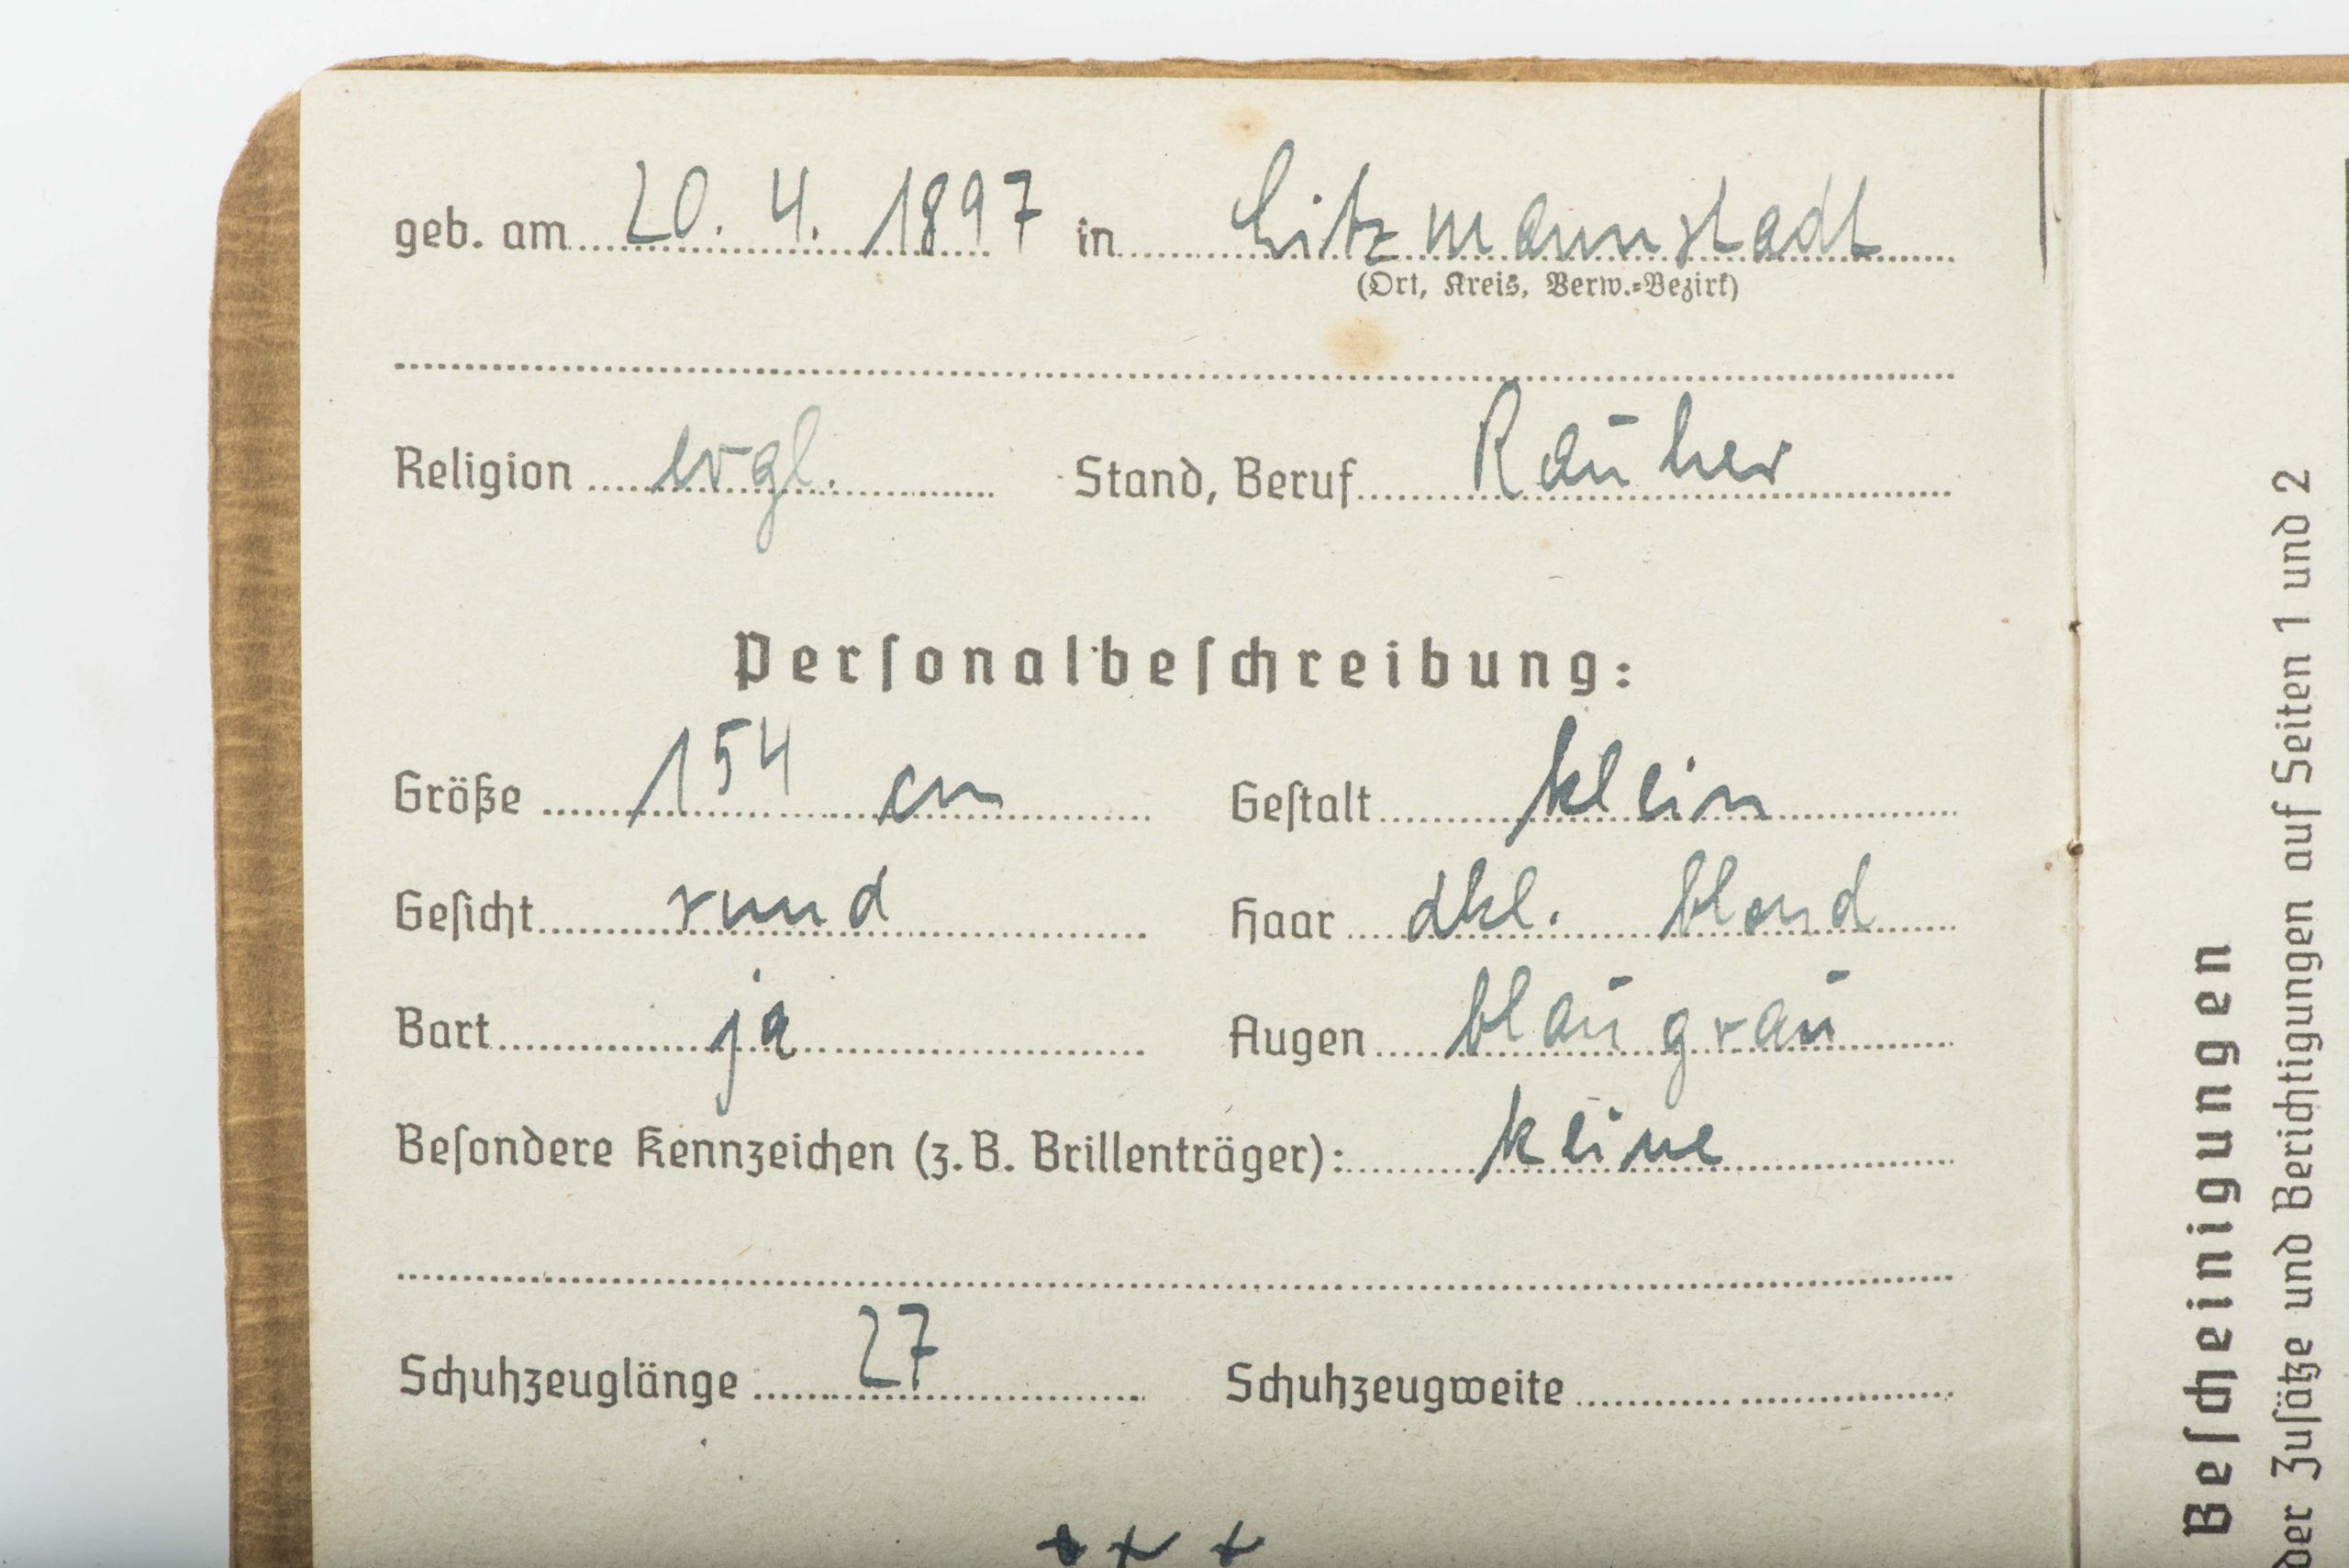 geb. am 20. 4. 1897 in Litzmannstadt
(Ort, Kreis, Verw.=Bezirk)
Religion evgl. Stand, Beruf Rauher
Personalbeschreibung:
Größe 154 cm Gestalt klein
Gesicht rund Haar dkl. blond
Bart ja Augen blaugrau
Besondere Kennzeichen (z. B. Brillenträger): keine
Schuhzeuglänge 27 Schuhzeugweite
Bescheinigungen
der Zusätze und Berichtigungen auf Seiten 1 und 2